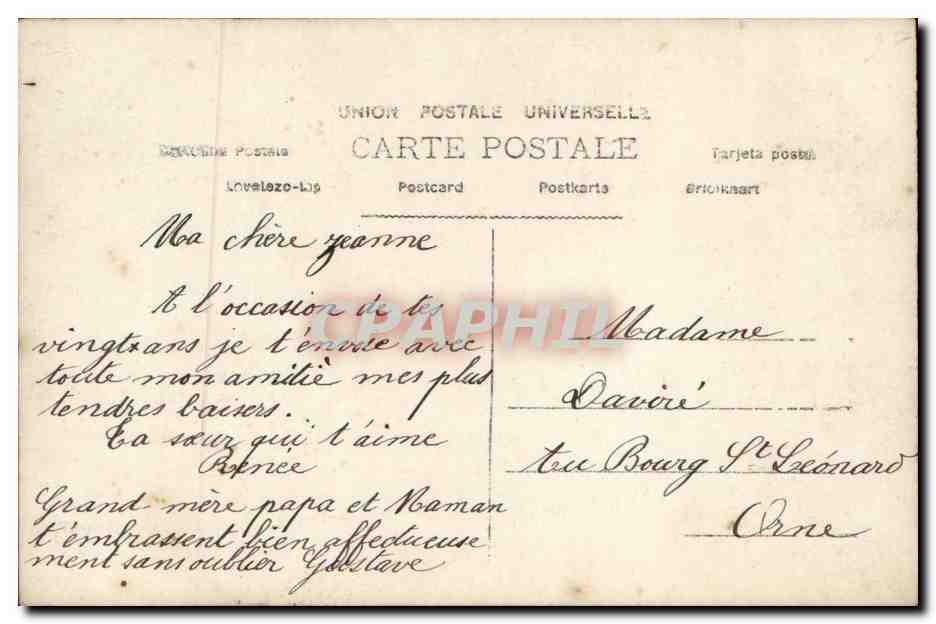 UNION POSTALE UNIVERSELLE
CARTE POSTALE
Postale Tarjeta postal
Levelezo-Lap Postcard Postkarte Briefkaart
Ma chère Jeanne
A l'occasion de tes
vingt ans je t'envoie avec
toute mon amitiè mes plus
tendres baisers.
Ta sœur qui t'aime
Renée
Grand mère papa et Maman
t'embrassent bien affectueuse
ment sans oublier Gustave
CPAPHIL
Madame
Daviré
Au Bourg St Léonard
Orne